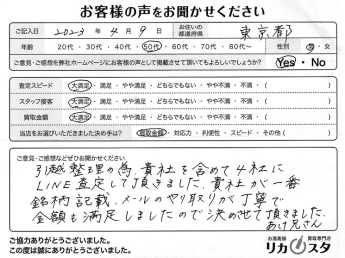 お客様の声をお聞かせください
ご記入日 2023年4月9日 お住いの都道府県 東京都
年齢 20代・30代・40代・50代・60代・70代・80代〜 性別 男・女
ご意見・ご感想を弊社ホームページにお客様の声として掲載させて頂いてもよろしいでしょうか? Yes・No
査定スピード 大満足・満足・やや満足・どちらでもない・やや不満・不満・( )
スタッフ接客 大満足・満足・やや満足・どちらでもない・やや不満・不満・( )
買取金額 大満足・満足・やや満足・どちらでもない・やや不満・不満・( )
当店をお選びいただきました決め手は? 買取金額・対応力・利便性・スピード・その他( )
ご意見・ご感想などぜひお聞かせください
引越整理の為、貴社を含めて4社に
LINE査定して頂きました。貴社が一番
銘柄記載、メールのやり取りが丁寧で
金額も満足しましたので決めさせて頂きました。
あけ兄さん
ご協力ありがとうございました。
この度は誠にありがとうございました。
お酒高価 買取専門店
リカスタ